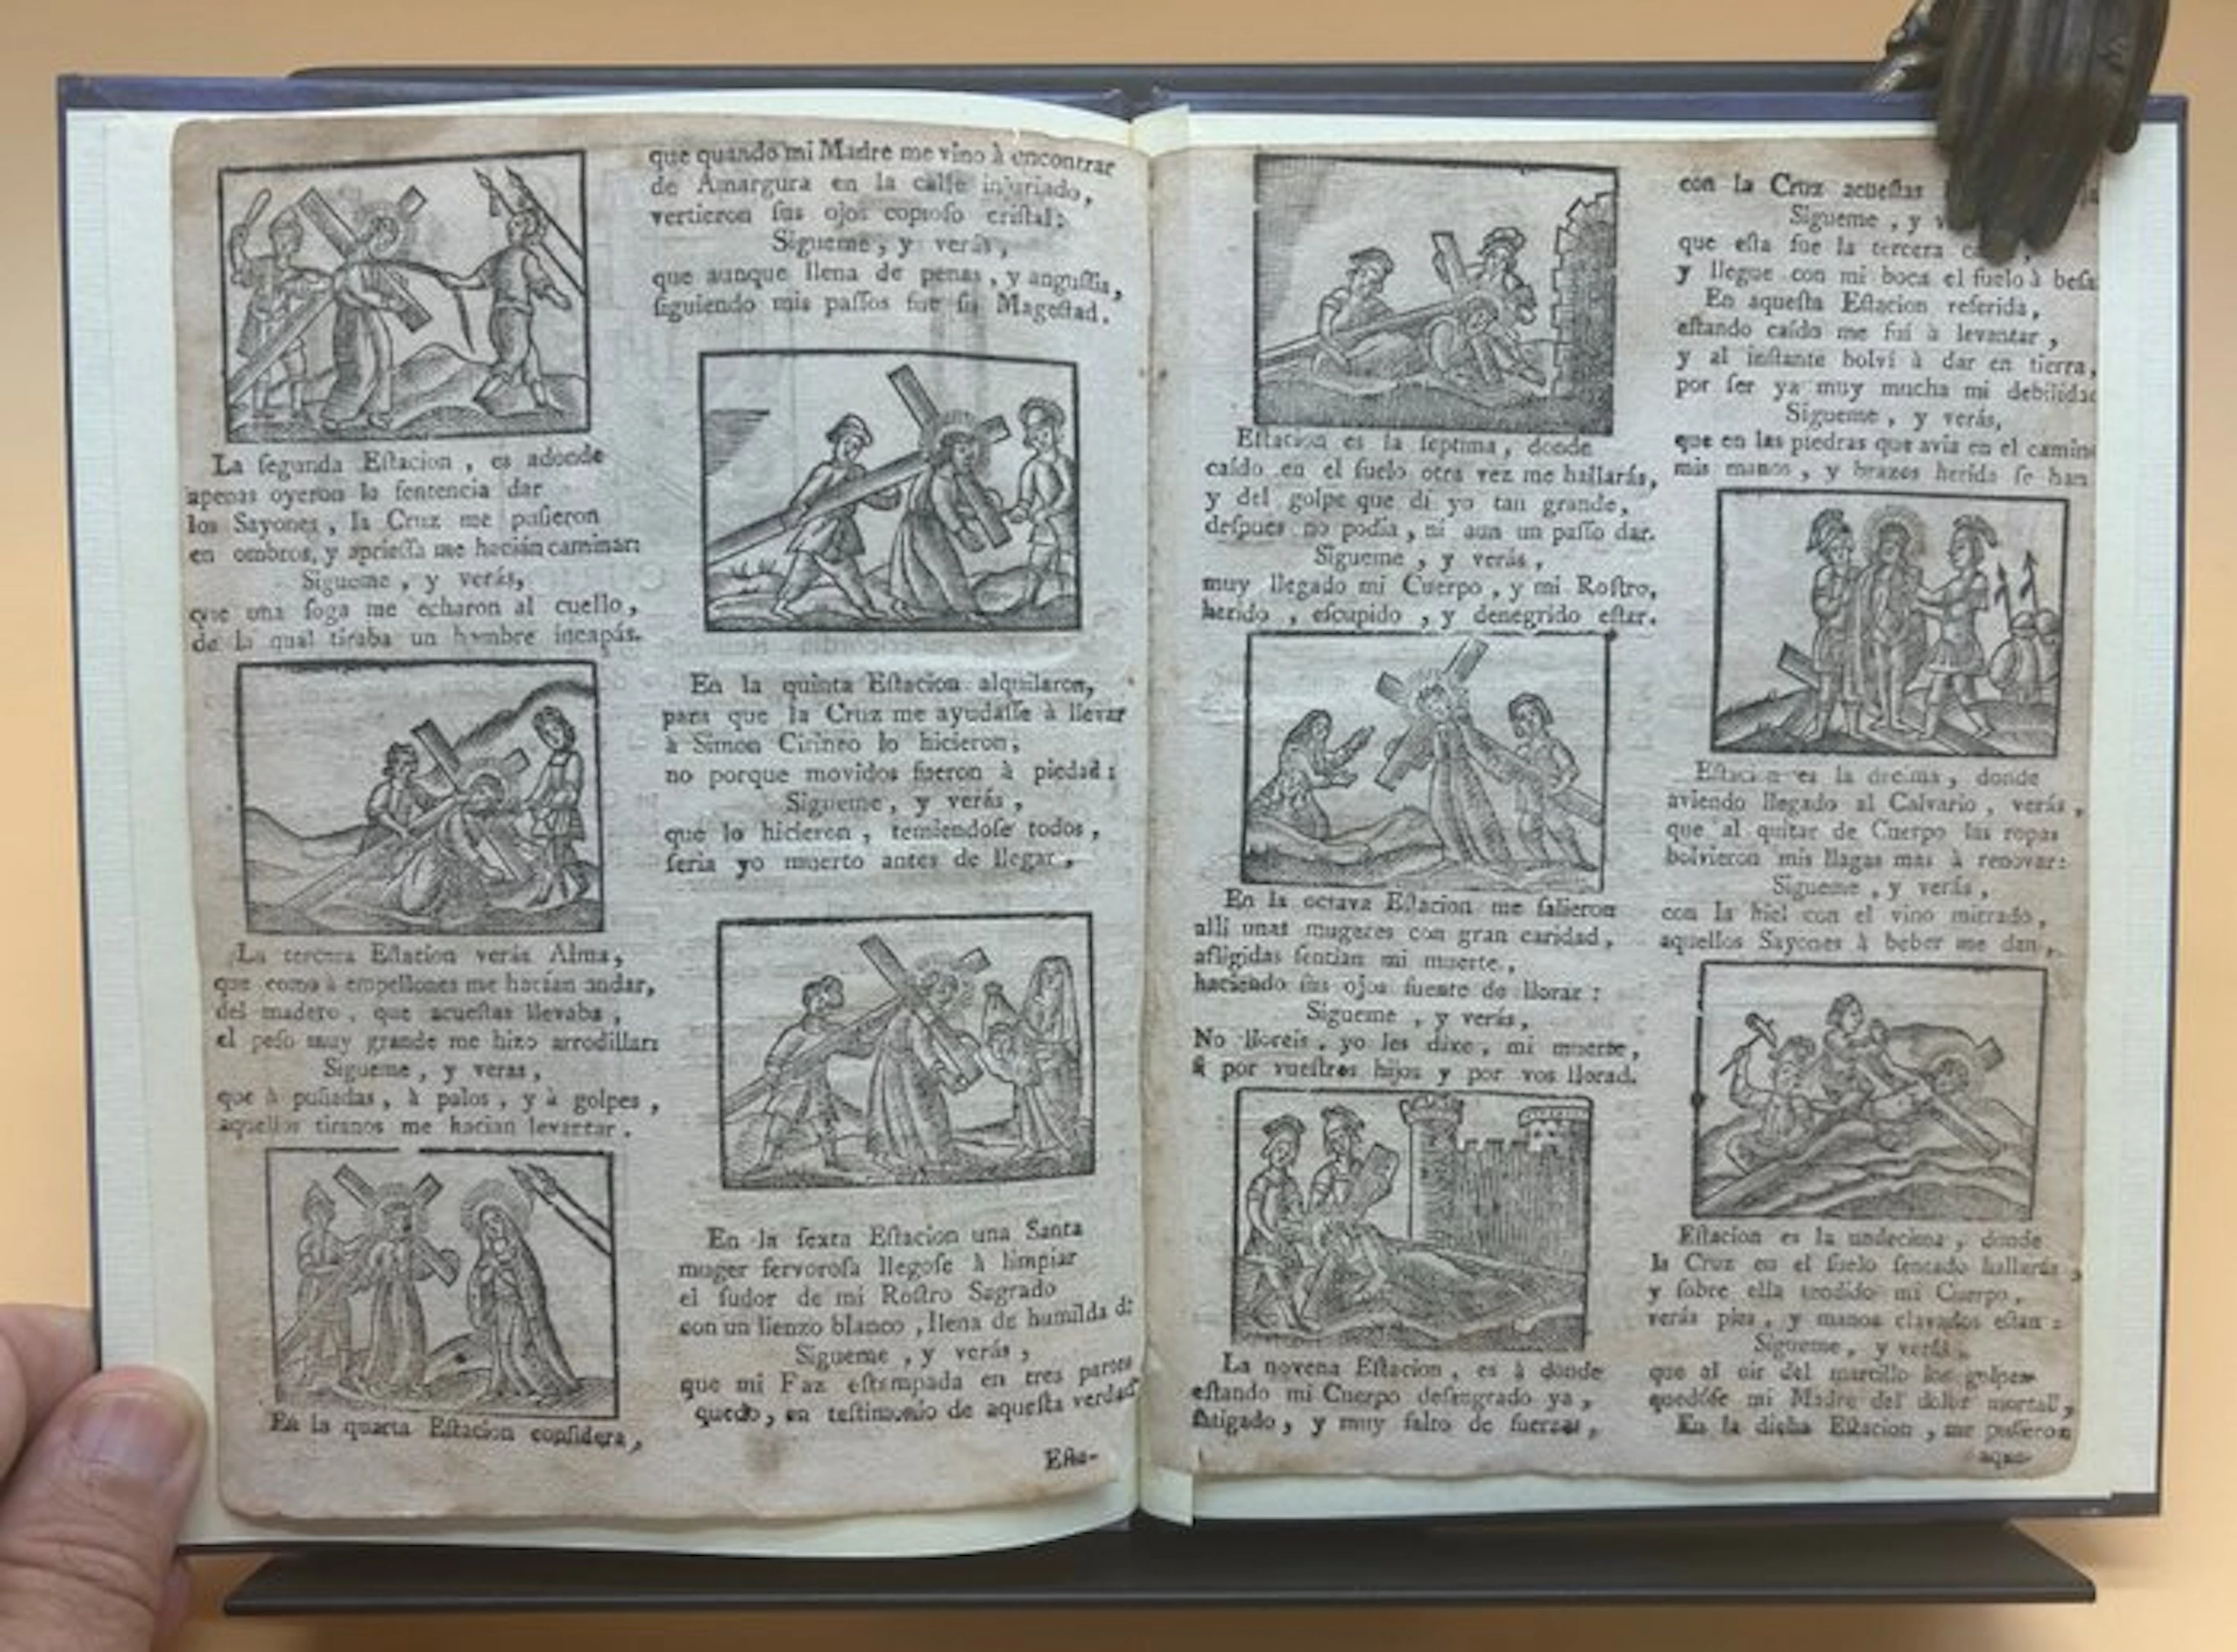 La ſegunda Eſtacion, es adonde
apenas oyeron la ſentencia dar
los Sayones, la Cruz me puſieron
en ombros, y aprieſſa me hacian caminar:
Sigueme, y verás,
que una ſoga me echaron al cuello,
de la qual tiraba un hombre incapás.
La tercera Eſtacion verás Alma,
que como à empellones me hacian andar,
del madero, que acueſtas llevaba,
el peſo muy grande me hizo arrodillar:
Sigueme, y veras,
que à puñadas, à palos, y à golpes,
aquellos tiranos me hacian levantar.
En la quarta Eſtacion conſidera,
que quando mi Madre me vino à encontrar
de Amargura en la calle injuriado,
vertieron ſus ojos copioſo criſtal:
Sigueme, y verás,
que aunque llena de penas, y anguſtia,
ſiguiendo mis paſſos fue ſu Mageſtad.
En la quinta Eſtacion alquilaron,
para que la Cruz me ayudaſſe à llevar
à Simon Cirineo lo hicieron,
no porque movidos fueron à piedad:
Sigueme, y verás,
que lo hicieron, temiendoſe todos,
ſeria yo muerto antes de llegar.
En la ſexta Eſtacion una Santa
muger fervoroſa llegoſe à limpiar
el ſudor de mi Roſtro Sagrado
con un lienzo blanco, llena de humilda d:
Sigueme, y verás,
que mi Faz eſtampada en tres partes
quedo, en teſtimonio de aqueſta verdad
Eſta-
Eſtacion es la ſeptima, donde
caído en el ſuelo otra vez me hallarás,
y del golpe que dí yo tan grande,
deſpues no podia, ni aun un paſſo dar.
Sigueme, y verás,
muy llegado mi Cuerpo, y mi Roſtro,
herido, eſcupido, y denegrido eſtar.
En la octava Eſtacion me ſalieron
alli unas mugeres con gran caridad,
afligidas ſentian mi muerte,
haciendo ſus ojos fuente de llorar:
Sigueme, y verás,
No lloreis, yo les dixe, mi muerte,
ſi por vueſtros hijos y por vos llorad.
La novena Eſtacion, es à donde
eſtando mi Cuerpo deſangrado ya,
fatigado, y muy falto de fuerzas,
con la Cruz acueſtas
Sigueme, y
que eſta fue la tercera
y llegue con mi boca el ſuelo à beſa
En aqueſta Eſtacion referida,
eſtando caído me fuí à levantar,
y al inſtante bolví à dar en tierra,
por ſer ya muy mucha mi debilidad
Sigueme, y verás,
que en las piedras que avia en el camino
mis manos, y brazos herida ſe han
Eſtacion es la decima, donde
aviendo llegado al Calvario, verás,
que al quitar de Cuerpo las ropas
bolvieron mis llagas mas à renovar:
Sigueme, y verás,
con la hiel con el vino mirrado,
aquellos Sayones à beber me dan,
Eſtacion es la undecima, donde
la Cruz en el ſuelo ſentado hallarás,
y ſobre ella tendido mi Cuerpo,
verás pies, y manos clavados eſtan:
Sigueme, y verás,
que al oir del martillo los golpes
quedóſe mi Madre del dolor mortal,
En la dicha Eſtacion, me puſieron
aque-